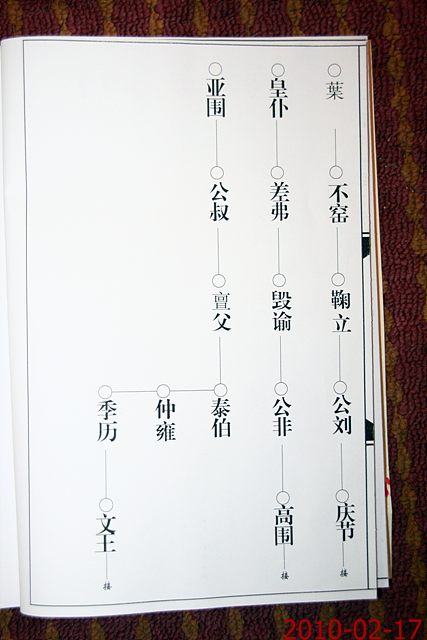 葉
不窑
鞠立
公刘
庆节
接
皇仆
差弗
毁谕
公非
高围
接
亚围
公叔
亶父
泰伯
仲雍
季历
文王
接
2010-02-17